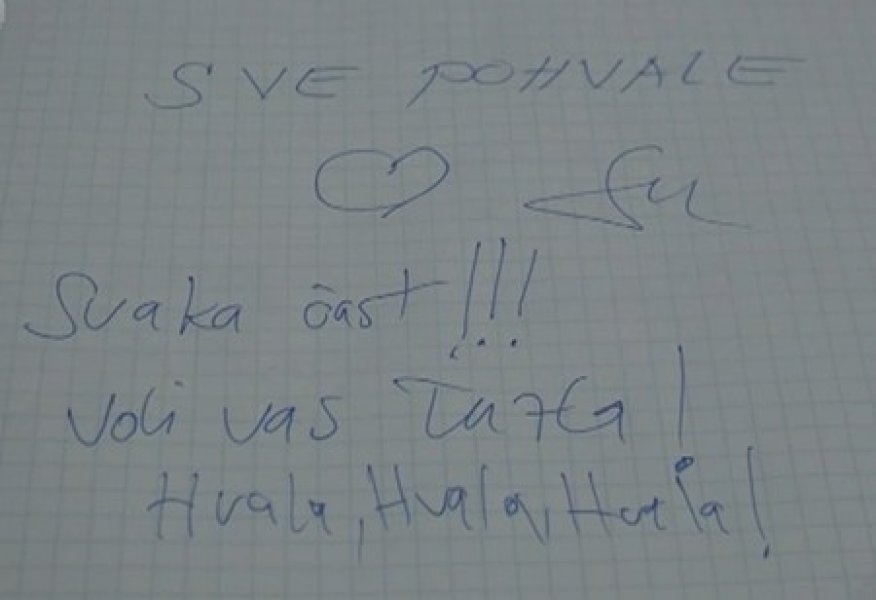 SVE POHVALE
Svaka čast!!!
Voli vas
Hvala, Hvala, Hvala!